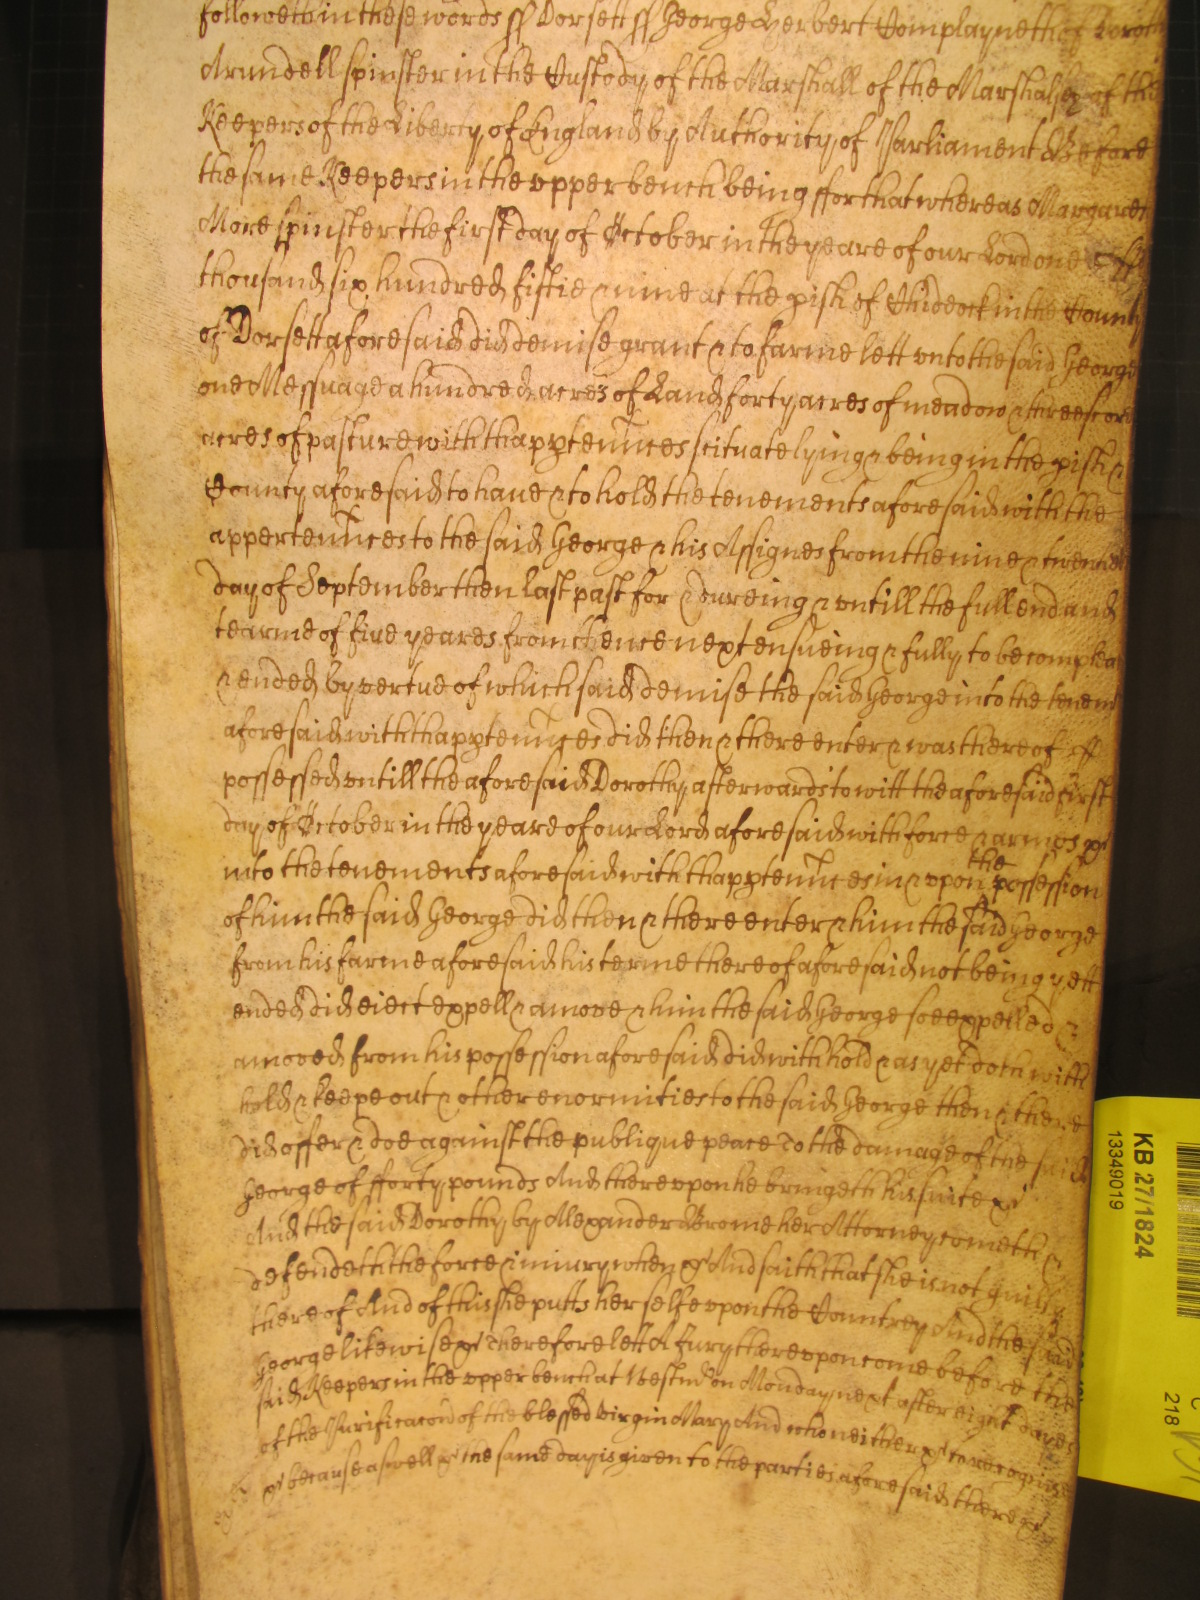 followeth in these words ss Dorsett ss George Herbert Complayneth of Doroth
Arundell spinster in the Custody of the Marshall of the Marshalsey of the
Keepers of the Liberty of England by Authority of Parliament Before
the same Keepers in the upper bench being ffor that whereas Margaret
More spinster the first day of October in the yeare of our Lord one
thousand six hundred fiftie & nine at the pish of Chideock in the County
of Dorsett aforesaid did demise grant & to farme lett vnto the said George
one Messuage a hundred acres of Land forty acres of meadow & threescore
acres of pasture with thapptennces scituate lying & being in the pish &
County aforesaid to haue & to hold the tenements aforesaid with the
appertennces to the said George & his Assignes from the nine & twentieth
day of September then last past for & dureing & vntill the full end and
tearme of fiue yeares from thence next ensueing & fully to be compleat
& ended by vertue of which said demise the said George into the tenemt
aforesaid with thapptennces did then & there enter & was thereof
possessed vntill the aforesaid Dorothy afterwards to witt the aforesaid first
day of October in the yeare of our Lord aforesaid with force & armes &c
into the tenements aforesaid with thapptennces in & vpon the possession
of him the said George did then & there enter & him the said George
from his farme aforesaid his terme thereof aforesaid not being yett
ended did eiect expell & amove & him the said George soe expelled &
amoved from his possession aforesaid did withhold & as yet doth with
hold & keepe out & other enormities to the said George then & there
did offer & doe against the publique peace To the damage of the said
George of fforty pounds And therevpon he bringeth his suite &c
And the said Dorothy by Alexander Brome her Attorney cometh &
defendeth the force & iniury when &c And saith that she is not guilty
thereof And of this she putts her selfe vpon the Countrey And the said
George likewise &c Therefore lett A Jury therevpon come before the
said Keepers in the vpper bench at Westmr on Monday next after eight dayes
of the Purificacon of the blessed virgin Mary And who neither &c to recognise
&c because aswell &c the same day is given to the parties aforesaid there &c
KB 27/1824
13349019
218